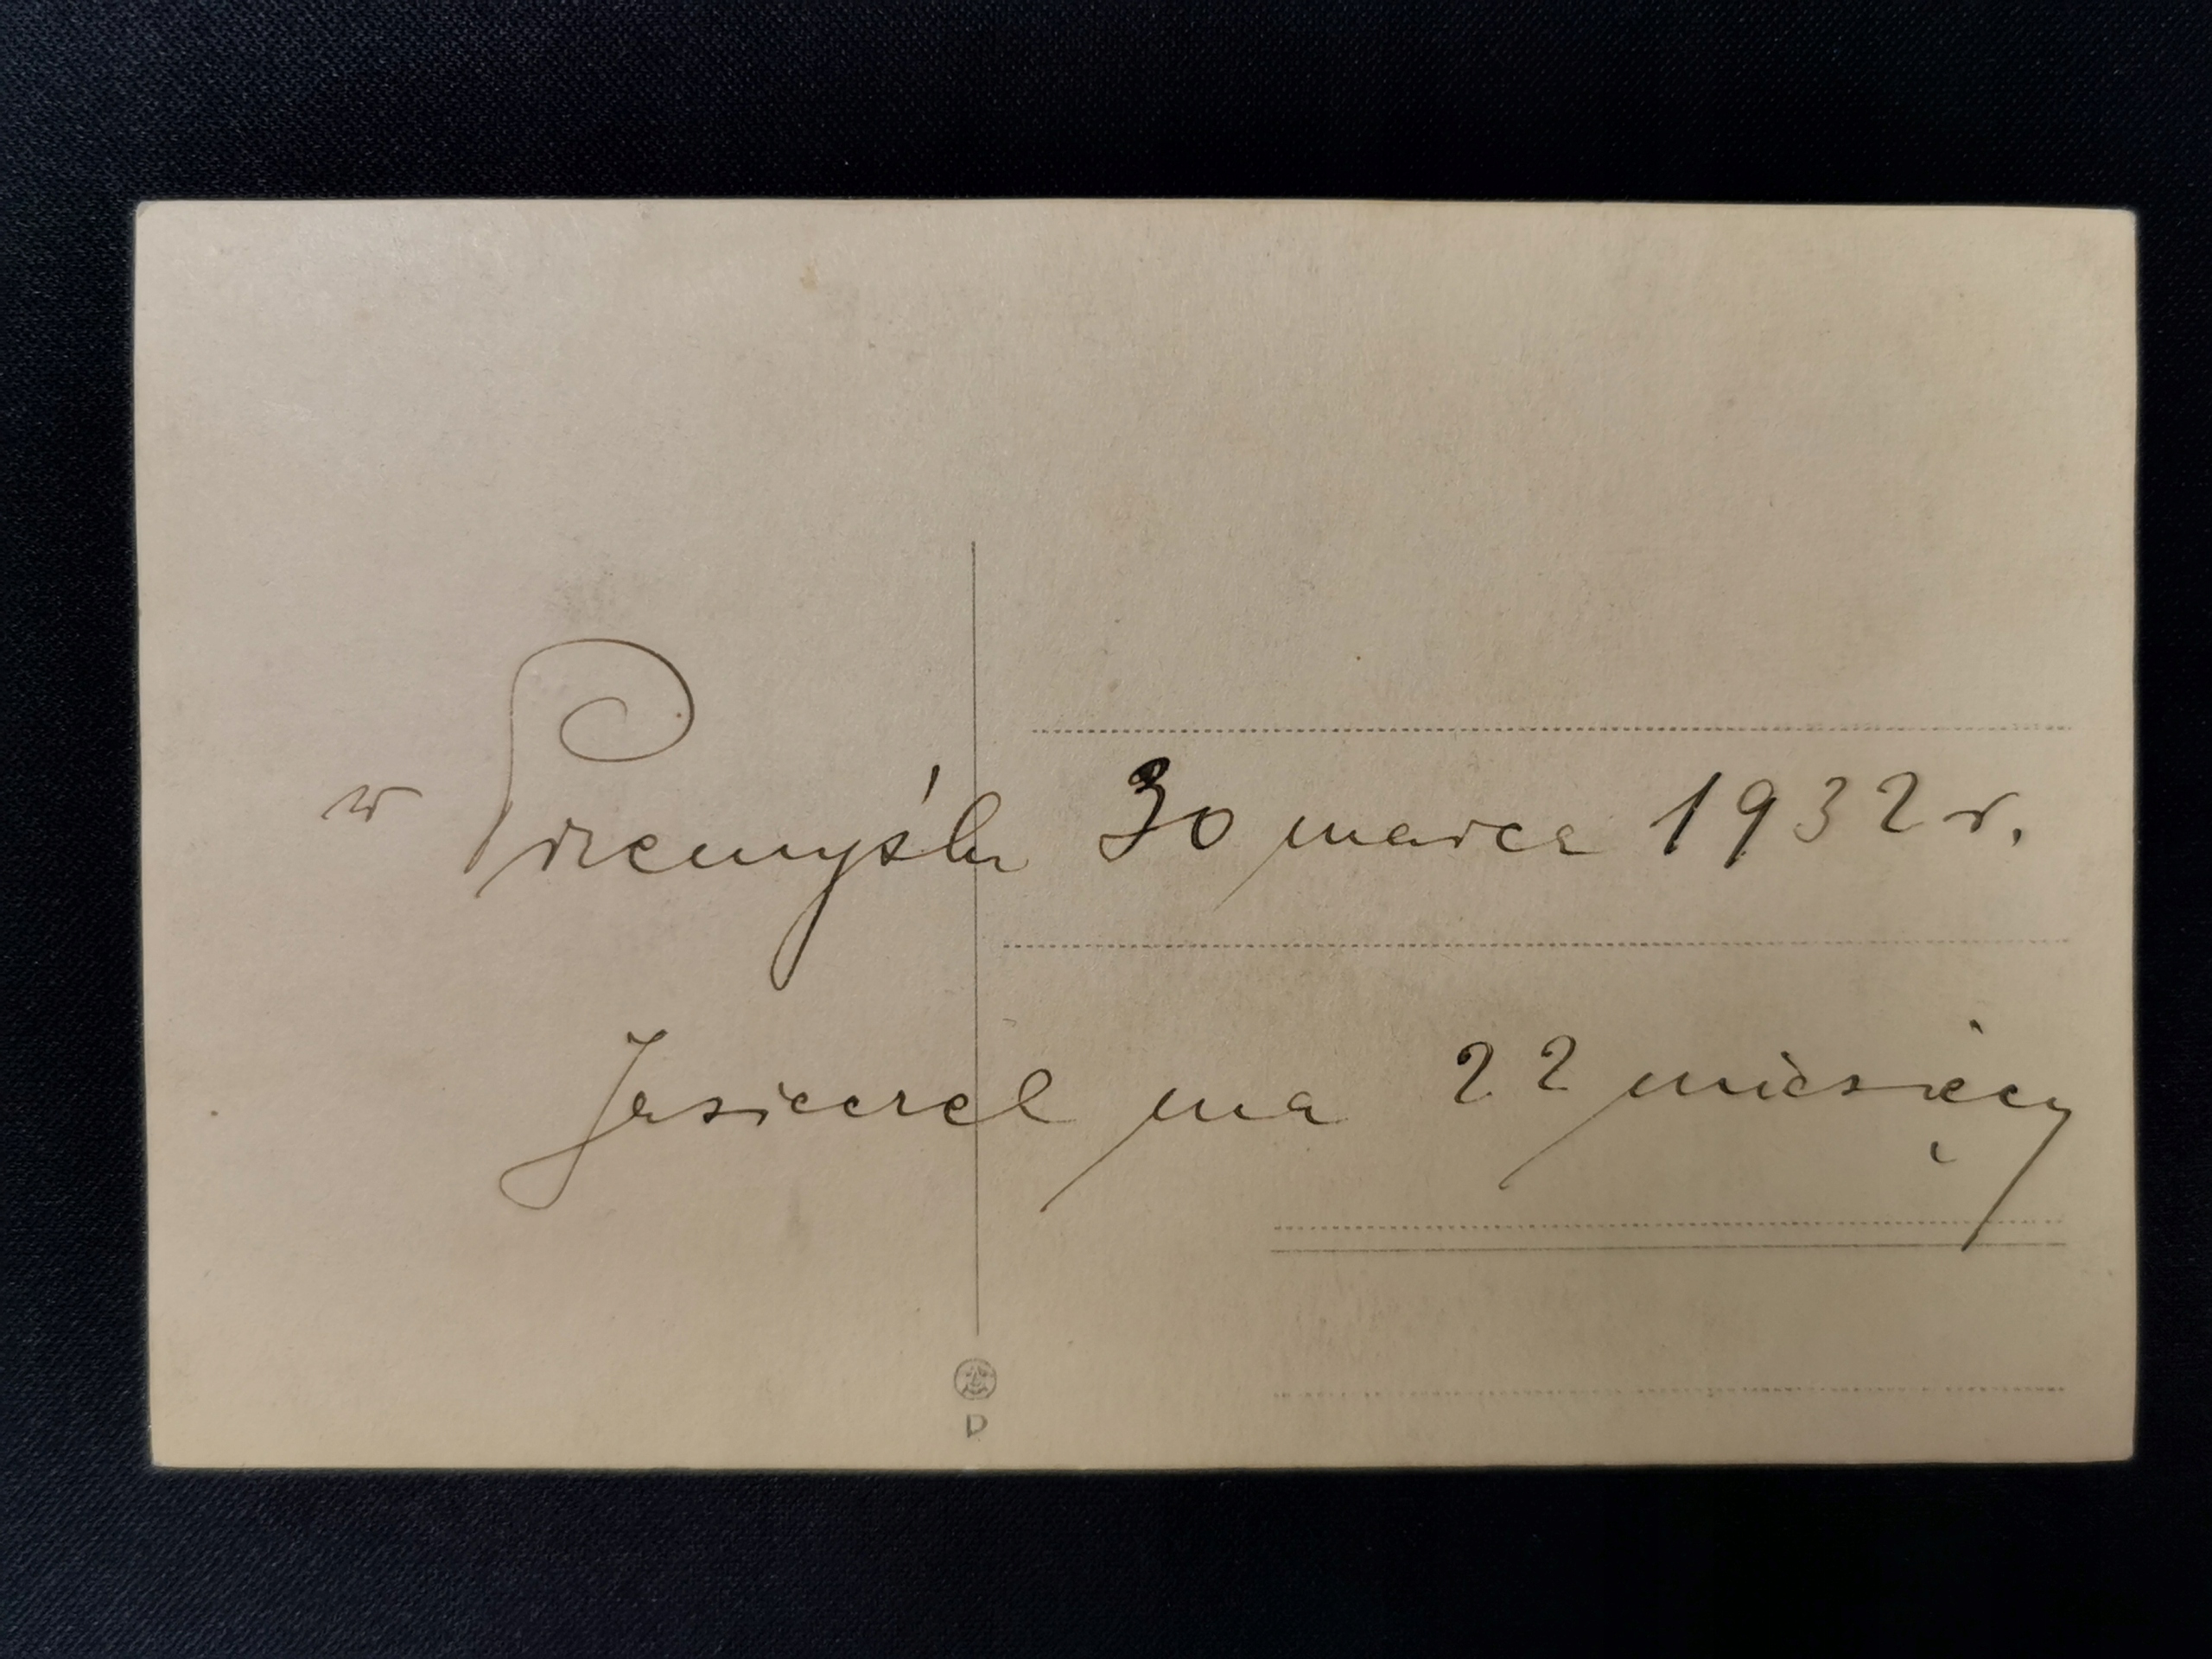 w Przemyślu 30 marca 1932 r.
Jasieczek ma 22 miesięcy
D